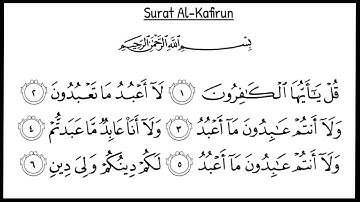 Surat Al-Kafirun
بِسْمِ اللَّهِ الرَّحْمَٰنِ الرَّحِيمِ
قُلْ يَٰٓأَيُّهَا ٱلْكَٰفِرُونَ ١ لَآ أَعْبُدُ مَا تَعْبُدُونَ ٢
وَلَآ أَنتُمْ عَٰبِدُونَ مَآ أَعْبُدُ ٣ وَلَآ أَنَا۠ عَابِدٌ مَّا عَبَدتُّمْ ٤
وَلَآ أَنتُمْ عَٰبِدُونَ مَآ أَعْبُدُ ٥ لَكُمْ دِينُكُمْ وَلِىَ دِينِ ٦